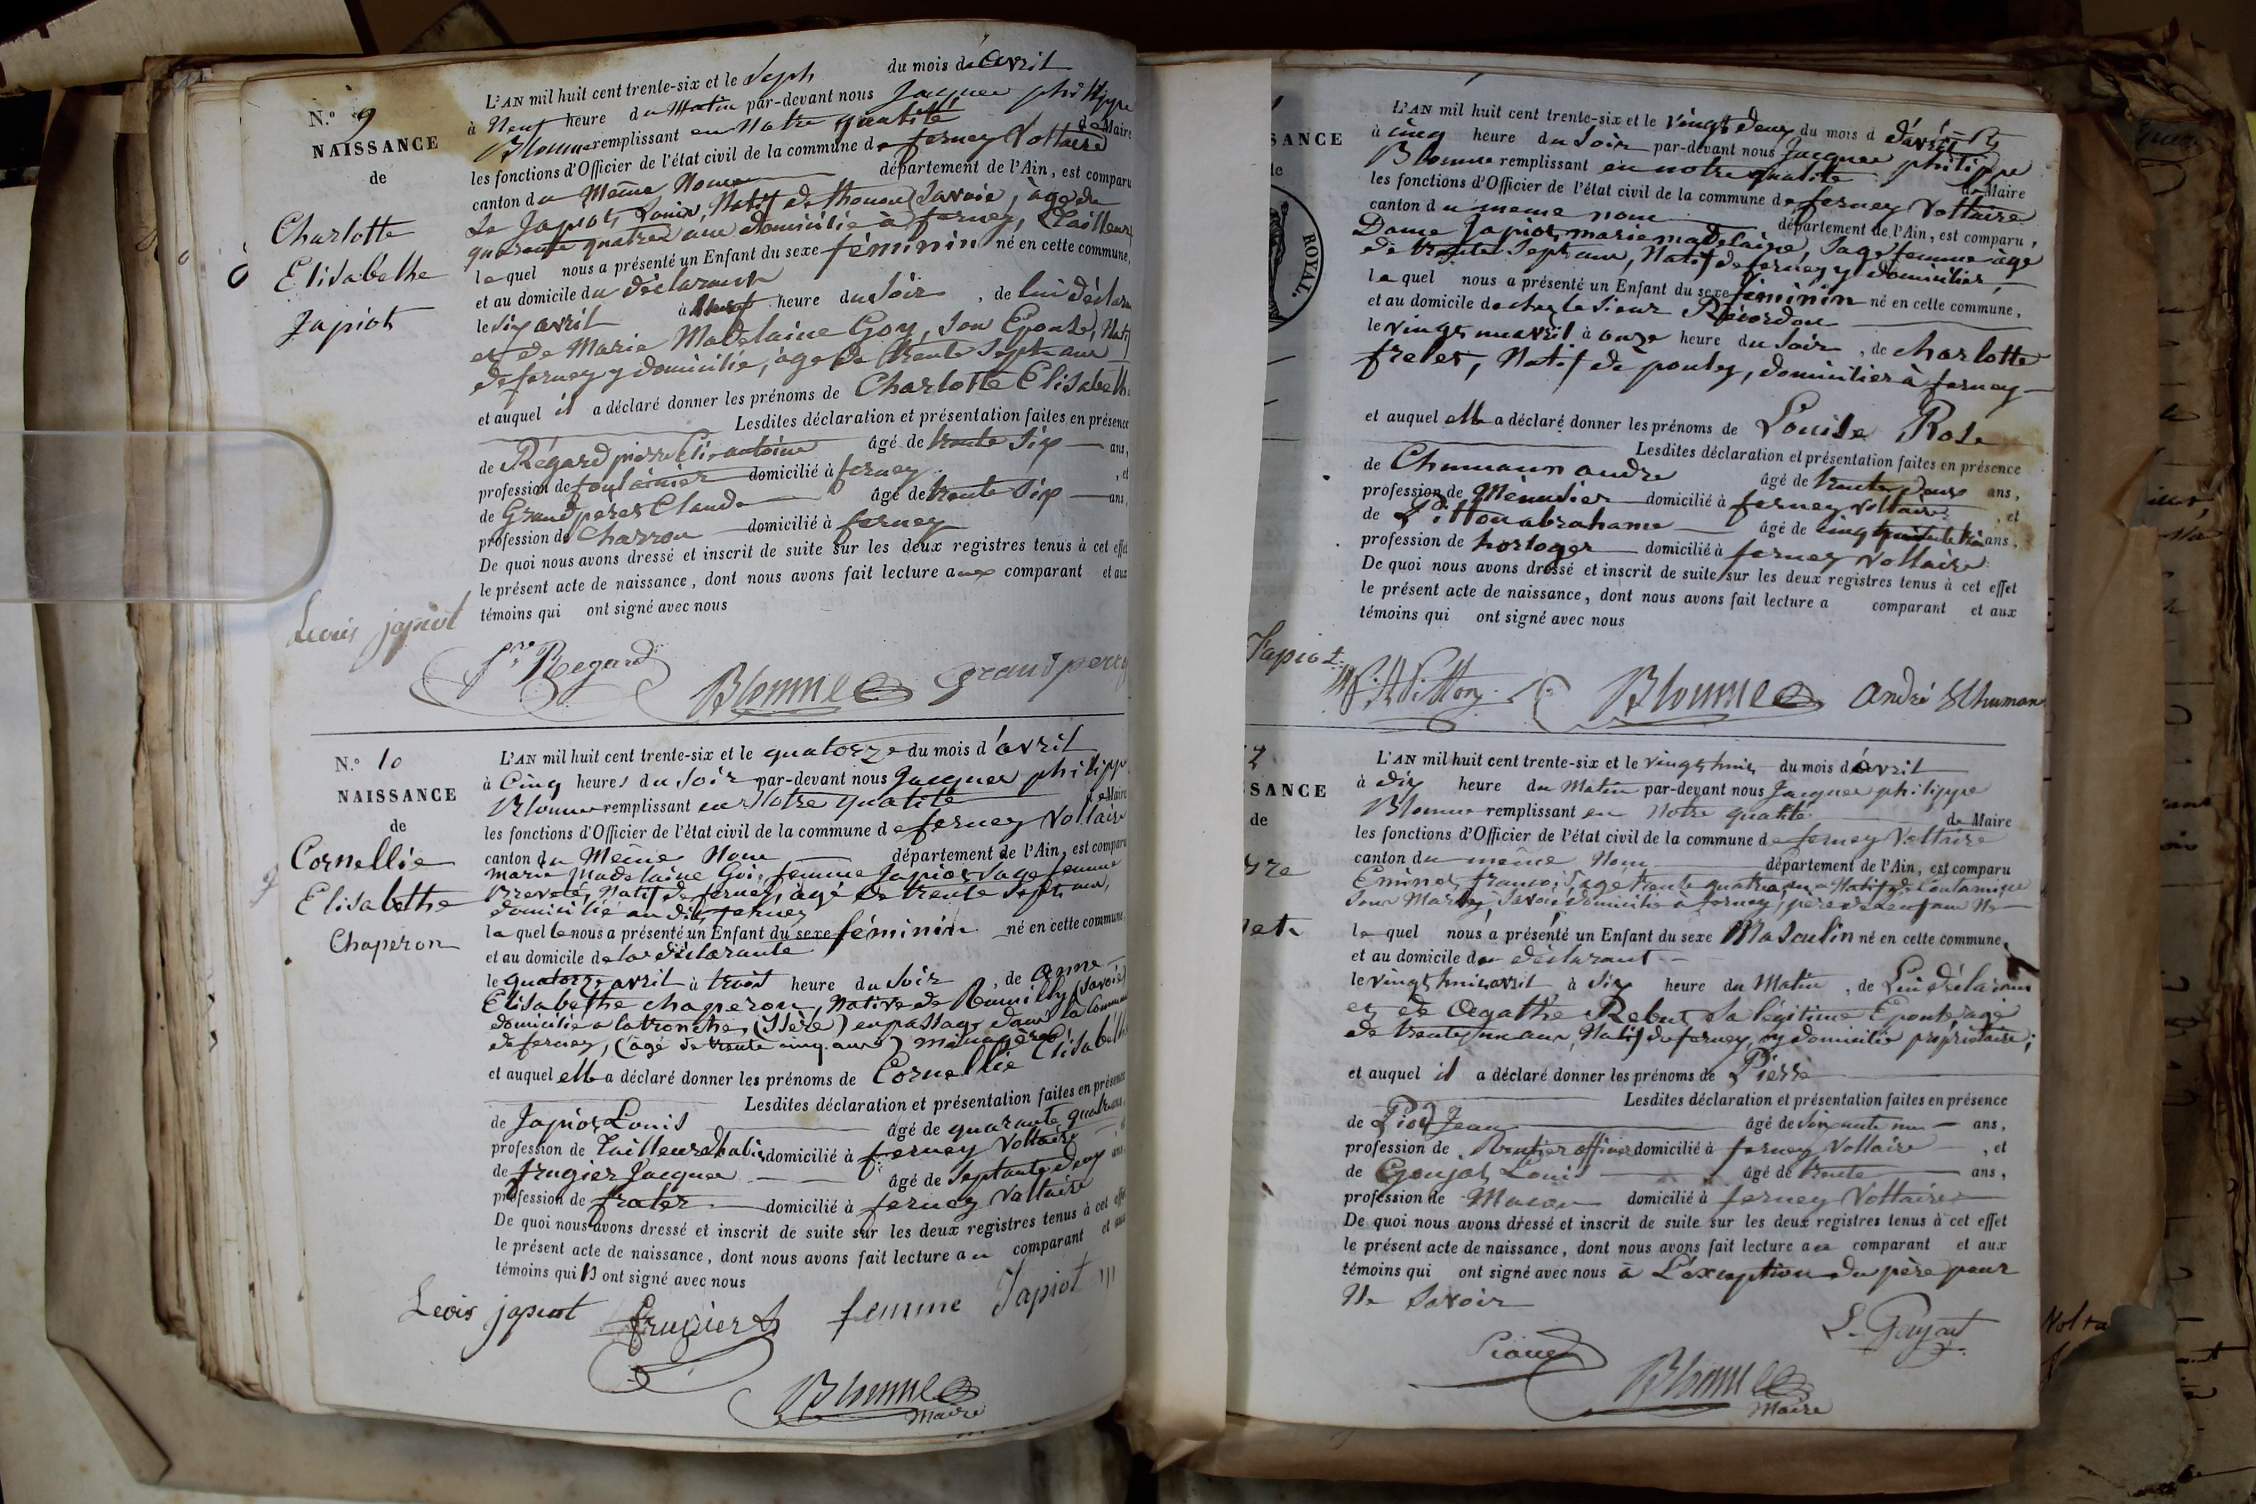 N.° 9
NAISSANCE
de
Charlotte
Elisabethe
Japiot
L'AN mil huit cent trente-six et le Sept du mois d'avril
à Neuf heure du Matin par-devant nous Jacques philippe
Blonne remplissant en Notre qualité de Maire
les fonctions d'Officier de l'état civil de la commune de ferney Voltaire
canton du Même Nom département de l'Ain, est comparu
Le Japiot Louis, Natif de thonon Savoie, âgé de
quarante quatre ans domicilié à ferney, tailleur
lequel nous a présenté un Enfant du sexe féminin né en cette commune,
et au domicile du déclarant
le six avril à heure du Soir, de lui déclarant
et de Marie Madelaine Goy, Son Epouse, Natif
de ferney y domicilié, âgé de trente Sept ans
et auquel il a déclaré donner les prénoms de Charlotte Elisabeth
Lesdites déclaration et présentation faites en présence
de Régard pierre antoine âgé de trente Six ans,
profession de domicilié à ferney, et
de Grandperret Claude âgé de trente Six ans,
profession de Charron domicilié à ferney
De quoi nous avons dressé et inscrit de suite sur les deux registres tenus à cet effet
le présent acte de naissance, dont nous avons fait lecture aux comparant et aux
témoins qui ont signé avec nous
Louis japiot
Regard
Blonne Grandperret
N.° 10
NAISSANCE
de
Cornellie
Elisabethe
Chaperon
L'AN mil huit cent trente-six et le quatorze du mois d'avril
à Cinq heures du Soir par-devant nous Jacques philipp
Blonne remplissant en Notre qualité de Maire
les fonctions d'Officier de l'état civil de la commune de ferney Voltaire
canton du Même Nom département de l'Ain, est comparu
marie Madelaine Goi, femme Japiot Sage femme
Breveté, Natif de ferney, âgé de trente Sept ans,
domicilié au dit ferney
laquelle nous a présenté un Enfant du sexe féminin né en cette commune
et au domicile de la déclarante
le quatorze avril à trois heure du Soir, de anne
Elisabethe chaperon, Native de Rumilly (Savoie)
domicilié a la tronche, (Isère) en passage dans la Commune
de ferney, (âgé de trente cinq ans) ménagère
et auquel elle a déclaré donner les prénoms de Cornellie Elisabethe
Lesdites déclaration et présentation faites en présence
de Japiot Louis âgé de quarante quatre ans,
profession de Tailleur d'habits domicilié à ferney Voltaire
de frugier Jacques âgé de Septante deux ans
profession de frater domicilié à ferney Voltaire
De quoi nous avons dressé et inscrit de suite sur les deux registres tenus à cet effet
le présent acte de naissance, dont nous avons fait lecture au comparant et aux
témoins qui ont signé avec nous
Louis japiot frugier femme Japiot
Blonne
Maire
SSANCE
de
ROYAL.
L'AN mil huit cent trente-six et le vingt deux du mois d'avril
à cinq heure du Soir par-devant nous Jacques philippe
Blonne remplissant en notre qualité de Maire
les fonctions d'Officier de l'état civil de la commune de ferney Voltaire
canton du meme nom département de l'Ain, est comparu,
Dame Japiot marie madelaine, Sage femme âgé
de trente Sept ans, Natif de ferney y domicilié,
laquel nous a présenté un Enfant du sexe féminin né en cette commune,
et au domicile de chez le Sieur Récordon
le vingt un avril à onze heure du Soir, de charlotte
freles, Natif de domicilier à ferney
et auquel elle a déclaré donner les prénoms de Louise Rose
Lesdites déclaration et présentation faites en présence
de Chumann andre âgé de trente deux ans,
profession de Menuisier domicilié à ferney Voltaire, et
de Pitton abrahame âgé de cinquante ans,
profession de horloger domicilié à ferney Voltaire
De quoi nous avons dressé et inscrit de suite sur les deux registres tenus à cet effet
le présent acte de naissance, dont nous avons fait lecture a comparant et aux
témoins qui ont signé avec nous
Japiot
Pitton Blonne andré Schuman
2
SSANCE
de
L'AN mil huit cent trente-six et le vingt huit du mois d'avril
à dix heure du Matin par-devant nous Jacques philippe
Blonne remplissant en Notre qualité de Maire
les fonctions d'Officier de l'état civil de la commune de ferney Voltaire
canton du même Nom département de l'Ain, est comparu
françois, âgé trente quatre ans Natif de
Savoie domicilié à ferney, père de
lequel nous a présenté un Enfant du sexe Masculin né en cette commune,
et au domicile du déclarant
le vingt huit avril à Six heure du Matin, de Lui déclarant
et de Agathe Rebut Sa légitime Epouse âgé
de trente un ans, Natif de ferney, y domicilié propriétaire;
et auquel il a déclaré donner les prénoms de Pierre
Lesdites déclaration et présentation faites en présence
de Jean âgé de Soixante un ans,
profession de Rentier officier domicilié à ferney Voltaire, et
de Goujot Louis âgé de trente ans,
profession de Macon domicilié à ferney Voltaire
De quoi nous avons dressé et inscrit de suite sur les deux registres tenus à cet effet
le présent acte de naissance, dont nous avons fait lecture au comparant et aux
témoins qui ont signé avec nous à L'exception du père pour
Ne Savoir
Blonne
Maire